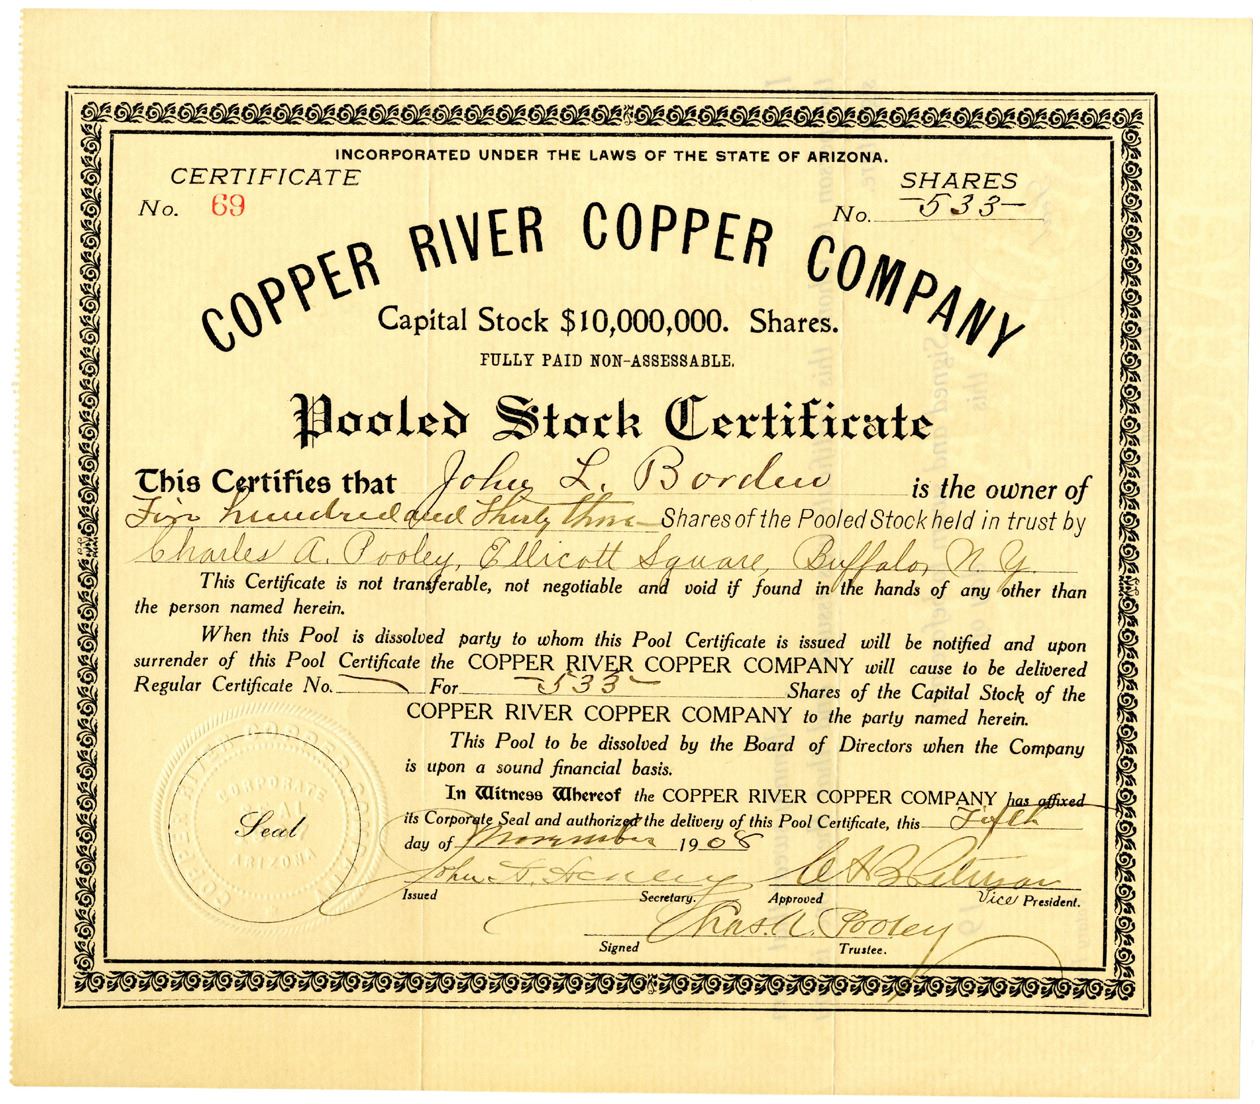 INCORPORATED UNDER THE LAWS OF THE STATE OF ARIZONA.
CERTIFICATE
No. 69
SHARES
No. -533-
COPPER RIVER COPPER COMPANY
Capital Stock $10,000,000. Shares.
FULLY PAID NON-ASSESSABLE.
Pooled Stock Certificate
This Certifies that John L. Borden is the owner of
Five hundred and Thirty three Shares of the Pooled Stock held in trust by
Charles A. Pooley, Ellicott Square, Buffalo, N. Y.
This Certificate is not transferable, not negotiable and void if found in the hands of any other than
the person named herein.
When this Pool is dissolved party to whom this Pool Certificate is issued will be notified and upon
surrender of this Pool Certificate the COPPER RIVER COPPER COMPANY will cause to be delivered
Regular Certificate No. — For -533- Shares of the Capital Stock of the
COPPER RIVER COPPER COMPANY to the party named herein.
This Pool to be dissolved by the Board of Directors when the Company
is upon a sound financial basis.
In Witness Whereof the COPPER RIVER COPPER COMPANY has affixed
its Corporate Seal and authorized the delivery of this Pool Certificate, this Fifth
day of November 1908
COPPER RIVER COPPER COMPANY
CORPORATE
SEAL
Seal
ARIZONA
John
Issued Secretary. Approved Vice President.
Chas. A. Pooley
Signed Trustee.